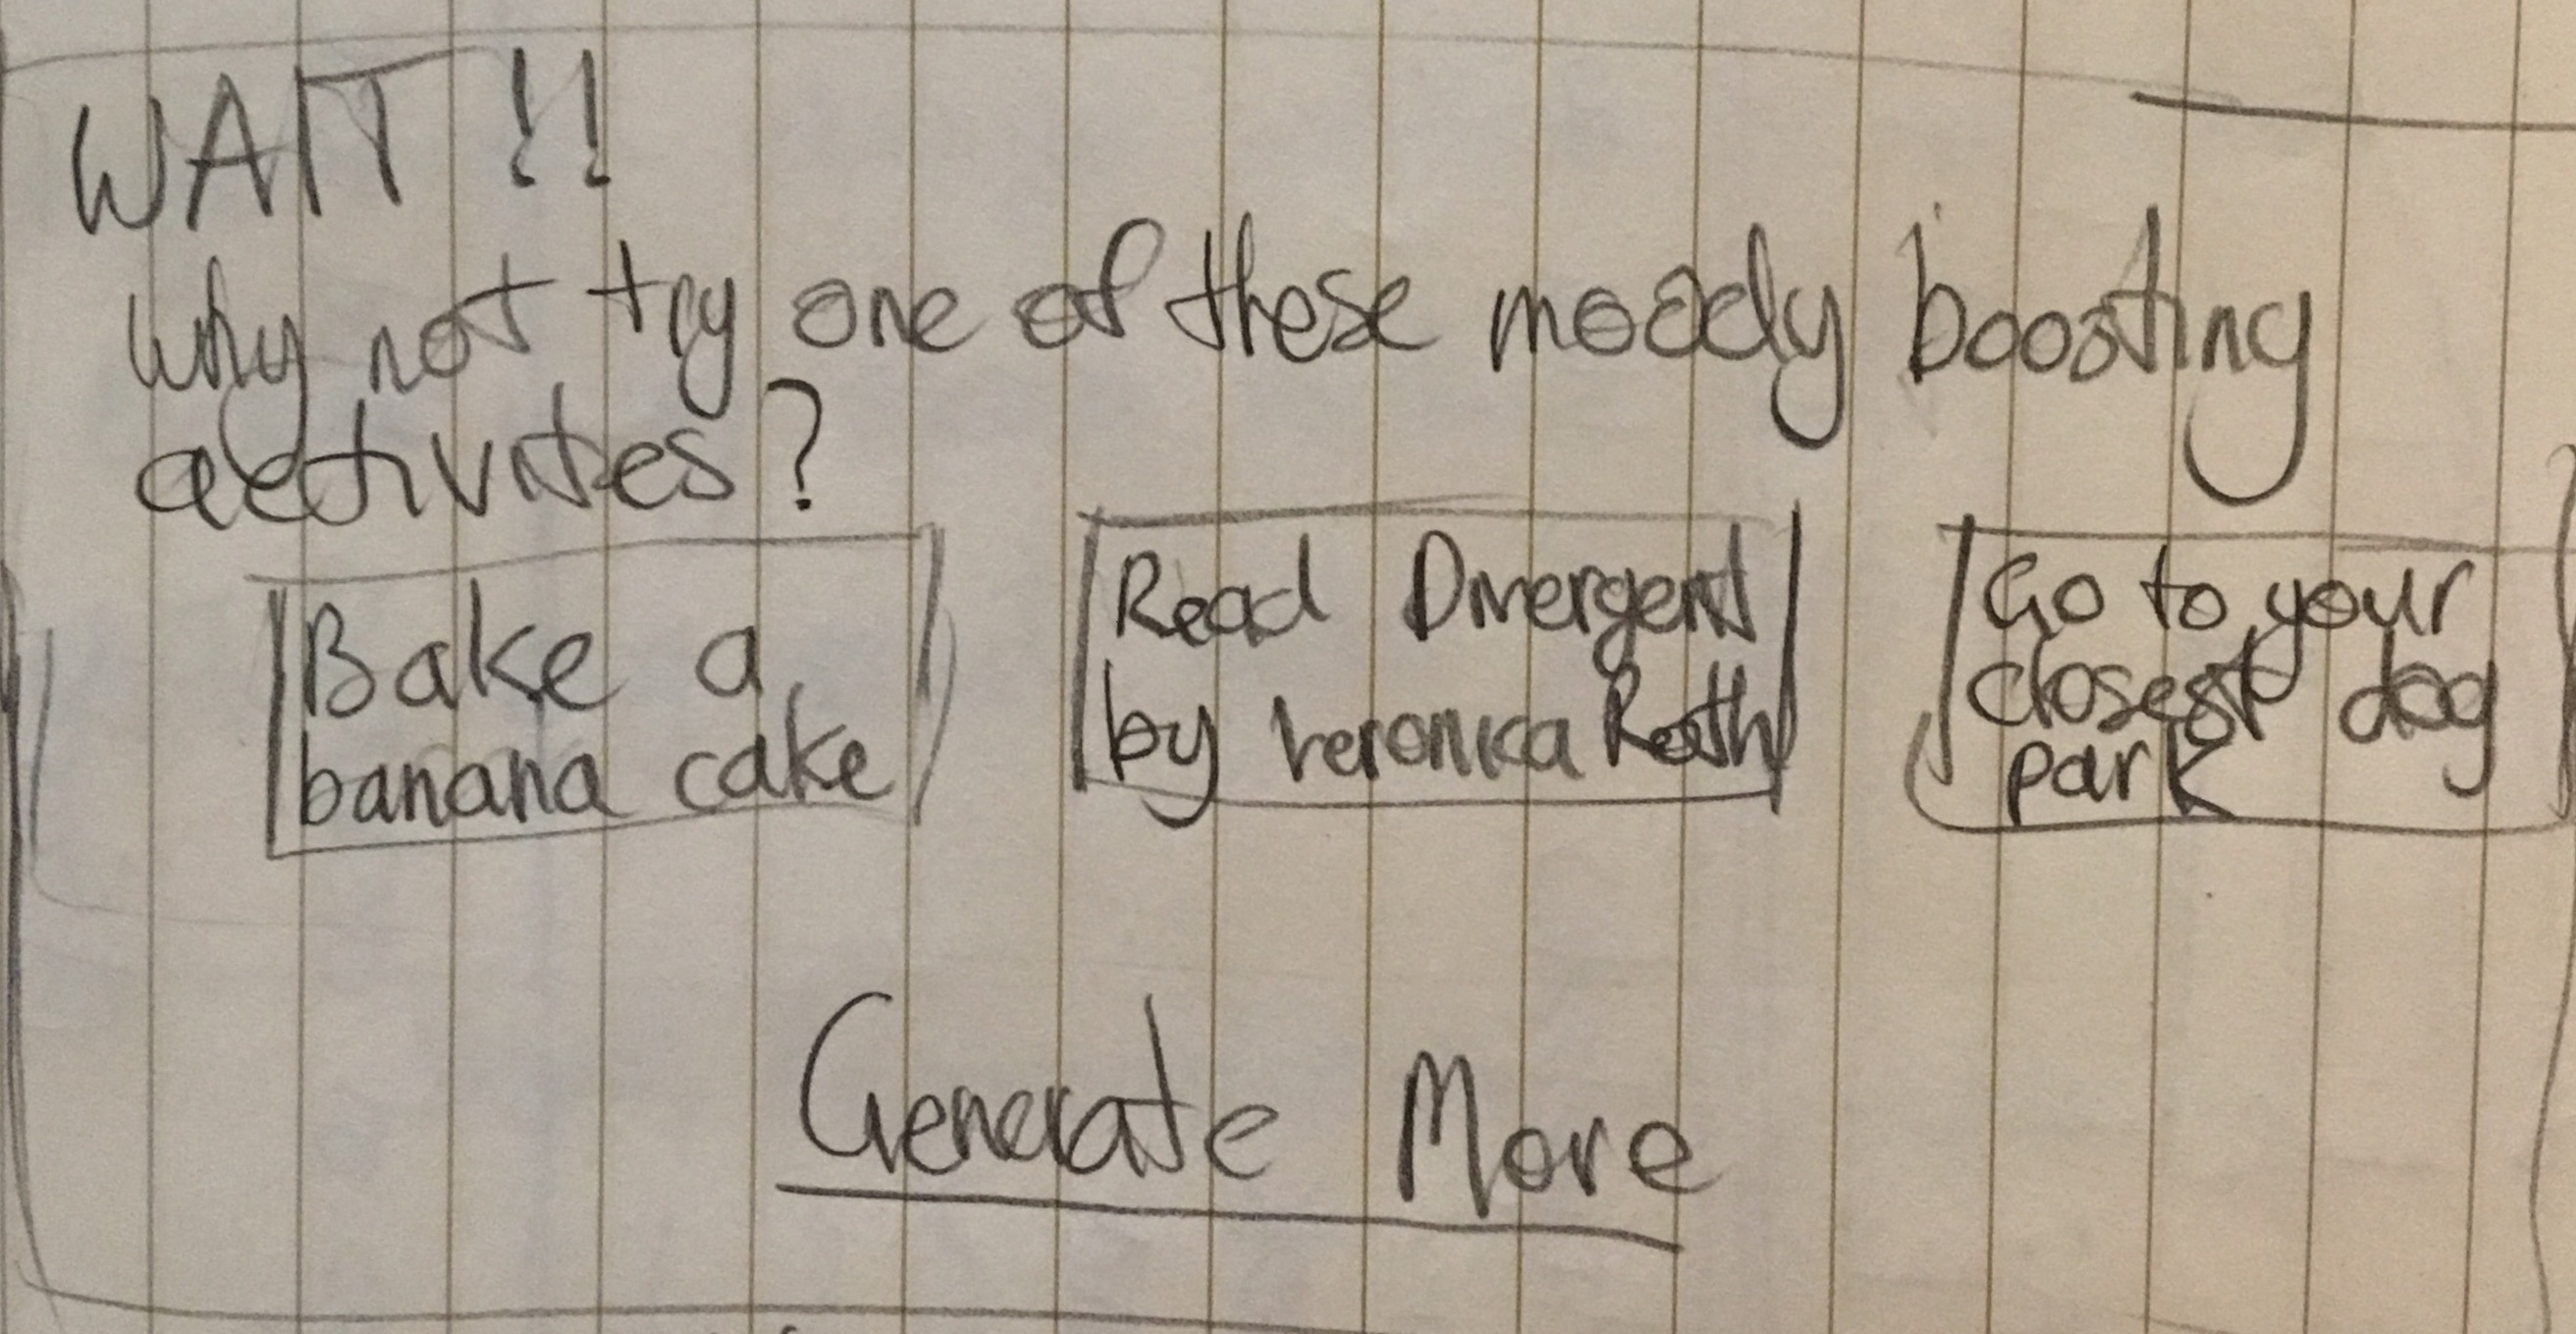 WAIT !!
Why not try one of these moody boosting
activites?
Bake a
banana cake
Read Divergent
by Veronica Roth
Go to your
closest dog
park
Generate More